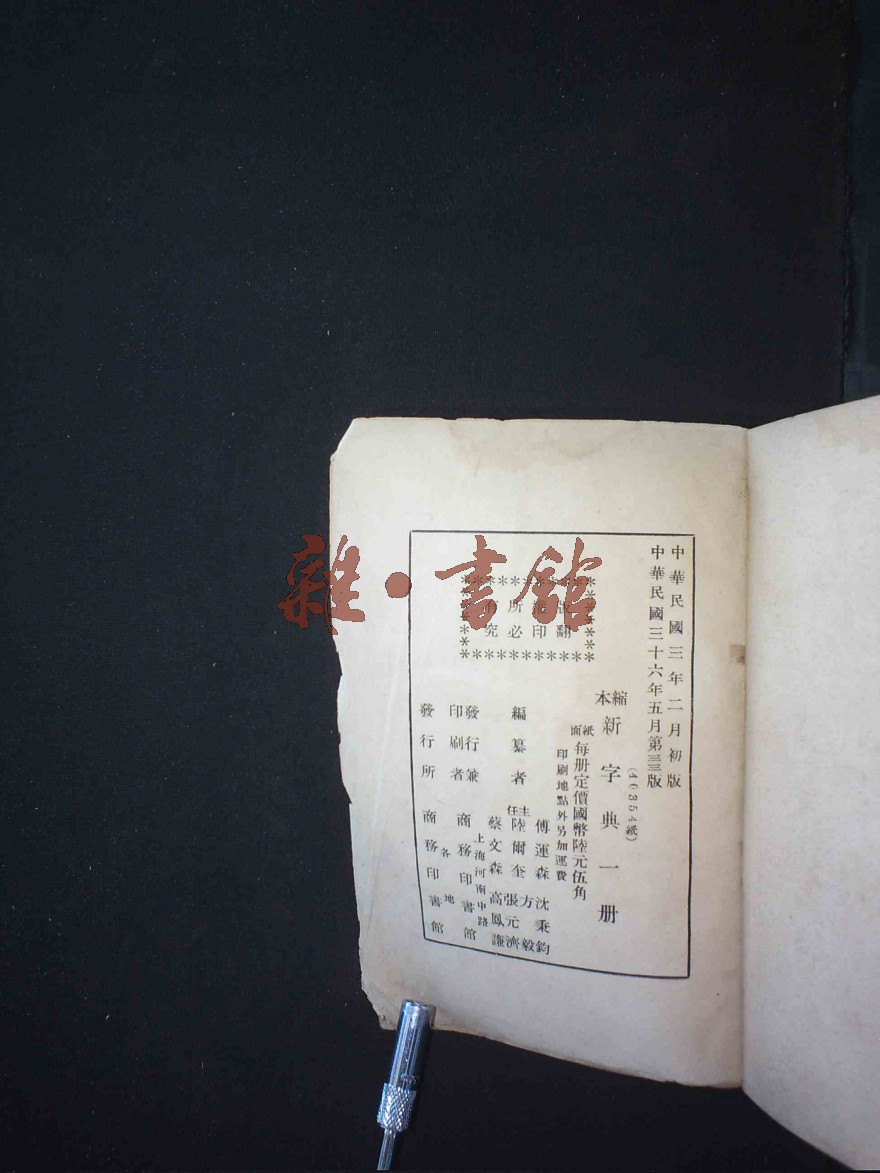 中華民國三年二月初版
中華民國三十六年五月第三三版
(46354紙)
縮本
新字典一册
紙面
每册定價國幣陸元伍角
印刷地點外另加運費
版權所有
翻印必究
編纂者
主任
傅運森 沈秉鈞
陸爾奎 方毅
張元濟
蔡文森 高鳳謙
發行兼
印刷者
上海河南中路
商務印書館
發行所
各地
商務印書館
雜·書館